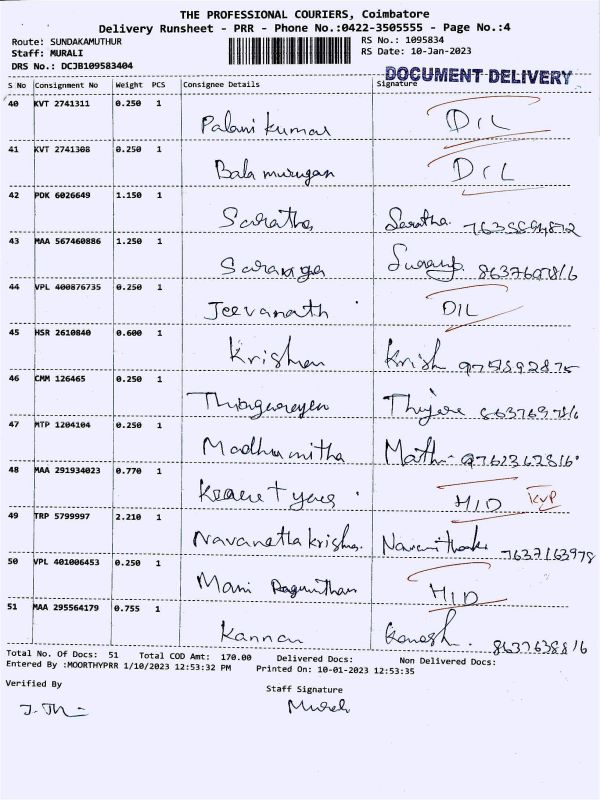 THE PROFESSIONAL COURIERS, Coimbatore
Delivery Runsheet - PRR - Phone No.:0422-3505555 - Page No.:4
Route: SUNDAKAMUTHUR RS No.: 1095834
Staff: MURALI RS Date: 10-Jan-2023
DRS No.: DCJB109583404
DOCUMENT DELIVERY
S No Consignment No Weight PCS Consignee Details Signature
40 KVT 2741311 0.250 1 Palani kumar D/L
41 KVT 2741308 0.250 1 Bala murugan D/L
42 PDK 6026649 1.150 1 Saratha Saratha.
43 MAA 567460886 1.250 1 Saranga
44 VPL 400876735 0.250 1 Jeevanath D/L
45 HSR 2610840 0.600 1 Krishnan Krish 9751892875
46 CMM 126465 0.250 1 8637697816
47 MTP 1204104 0.250 1 Madhumitha Math 9761362816
48 MAA 291934023 0.770 1 H/D KVP
49 TRP 5799997 2.210 1 Navaneethakrishna 7637163978
50 VPL 401006453 0.250 1 Mani Ragunthan H/D
51 MAA 295564179 0.755 1 Kannan Ganesh. 8637638816
Total No. Of Docs: 51 Total COD Amt: 170.00 Delivered Docs: Non Delivered Docs:
Entered By :MOORTHYPRR 1/10/2023 12:53:32 PM Printed On: 10-01-2023 12:53:35
Verified By Staff Signature
Murali